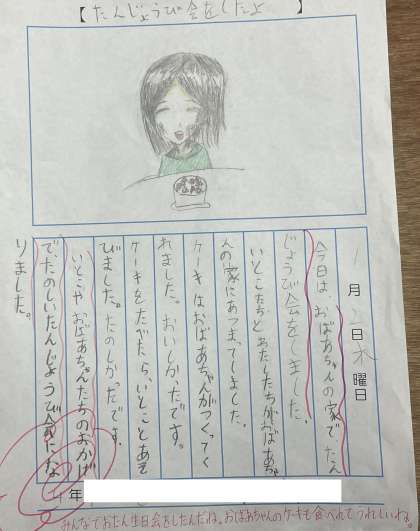 【たんじょうび会をしたよ】
月 日木曜日
今日は、おばあちゃんの家でたん
じょうび会をしました。
いとこたちとわたしたちがおばあちゃ
んの家にあつまってしました。
ケーキはおばあちゃんがつくってく
れました。おいしかったです。
ケーキをたべたら、いとことあそ
びました。たのしかったです。
いとこやおばあちゃんたちのおかげ
でたのしいたんじょうび会にな
りました。
年
みんなでおたん生日会をしたんだね。おばあちゃんのケーキも食べれてうれしいね。